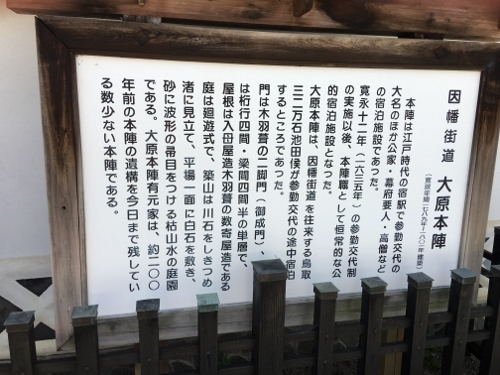 因幡街道 大原本陣
(寛政年間一七八九~一八〇一年建立)
本陣は江戸時代の宿駅で参勤交代の
大名のほか公家・幕府要人・高僧など
の宿泊施設であった。
寛永十二年(一六三五年)の参勤交代制
の実施以後、本陣職として恒常的な公
的宿泊施設となった。
大原本陣は、因幡街道を往来する鳥取
三二万石池田侯が参勤交代の途中宿泊
するところであつた。
門は木羽葺の二脚門(御成門)、
は桁行四間・梁間四間半の単層で、
屋根は入母屋造木羽葺の数寄屋造である
庭は廻遊式で、築山は川石をしきつめ
渚に見立て、平場一面に白石を敷き、
砂に波形の帚目をつける枯山水の庭園
である。大原本陣有元家は、約二〇〇
年前の本陣の遺構を今日まで残してい
る数少ない本陣である。